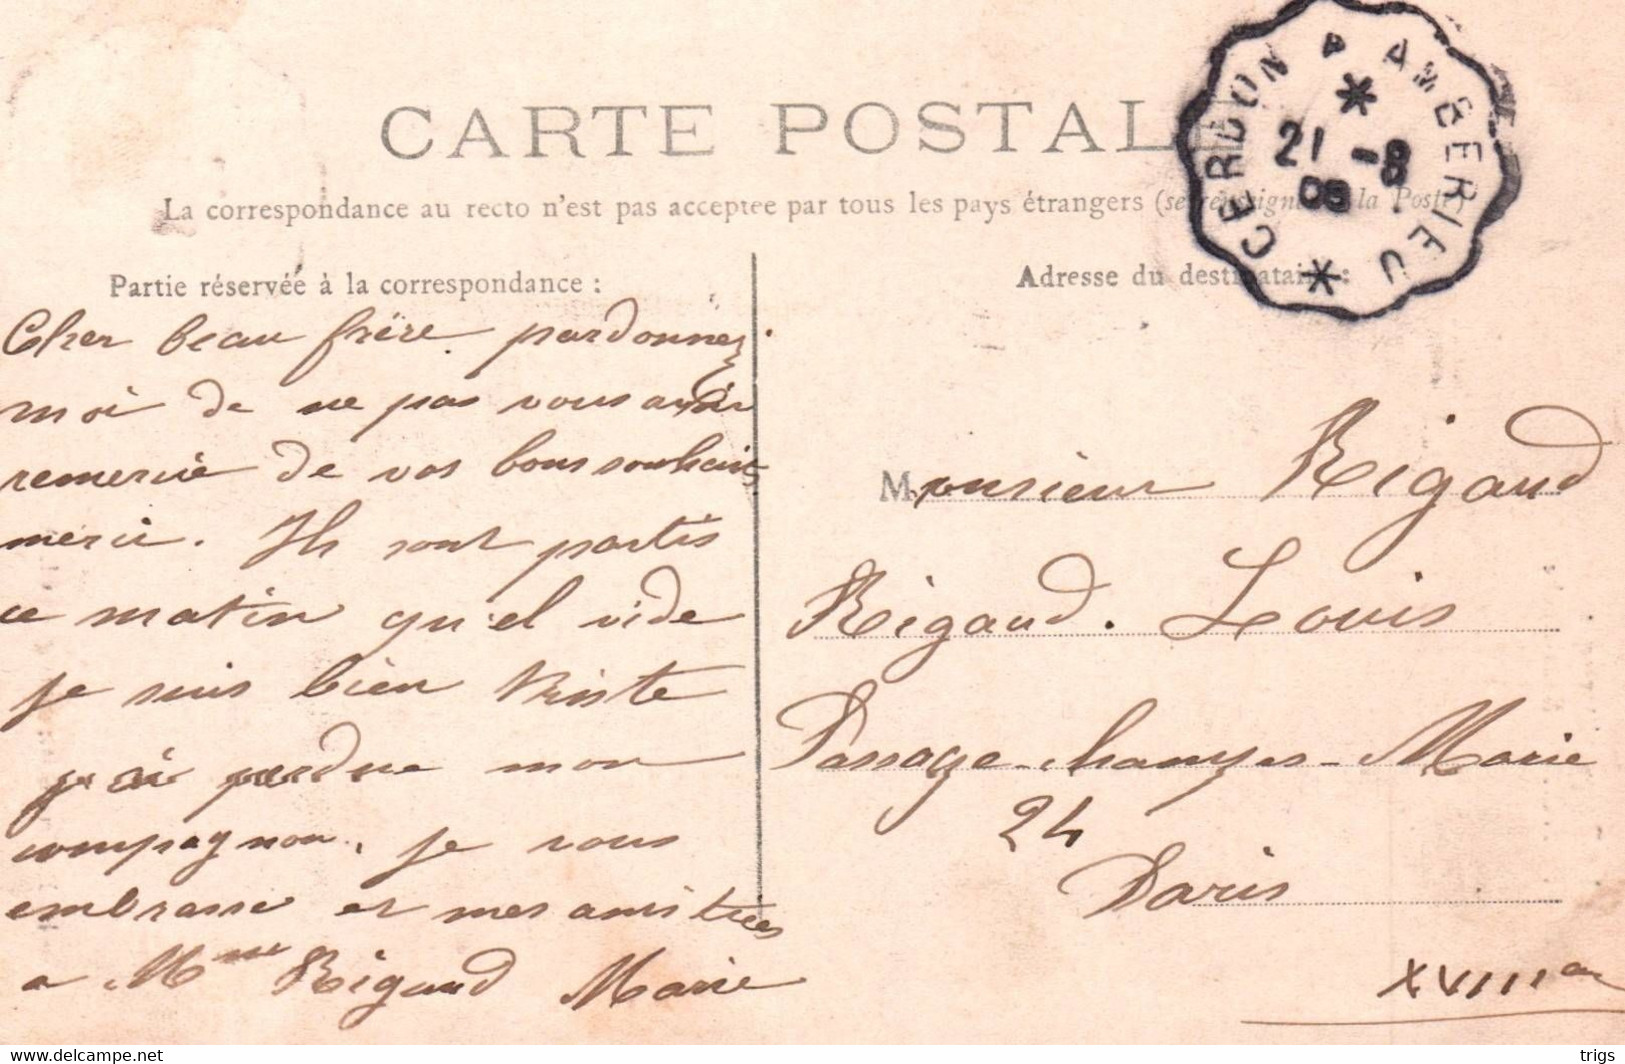 CARTE POSTALE
La correspondance au recto n'est pas acceptée par tous les pays étrangers (se renseigner à la Poste)
CERDON A AMBERIEU
21 -8
08
Partie réservée à la correspondance :
Cher beau frère pardonnez
moi de ne pas vous avoir
remercie de vos bons souhaits
merci. Ils sont partis
ce matin qu'el vide
je suis bien triste
j'ai perdue mon
compagnon. je vous
embrasse et mes amitiees
a Mme Rigaud Marie
Adresse du destinataire :
Monsieur Rigaud
Rigaud. Louis
Passage-champs-Marie
24
Paris
XVIII
trigs
https://www.delcampe.net